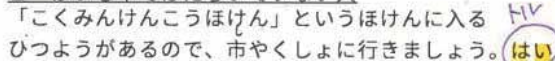 「こくみんけんこうほけん」というほけんに入る
ひつようがあるので、市やくしょに行きましょう。はい